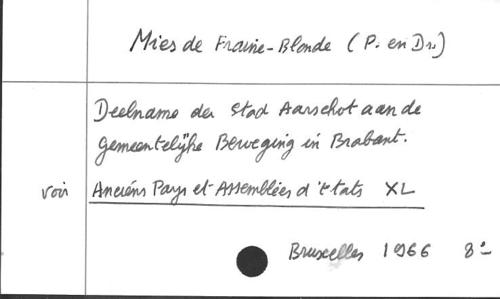 Mies de Fraine-Blonde (P. en Dr.)
Deelname der Stad Aarschot aan de
gemeentelijke Beweging in Brabant.
voir Anciens Pays et Assemblées d'Etats XL
Bruxelles 1966 8°